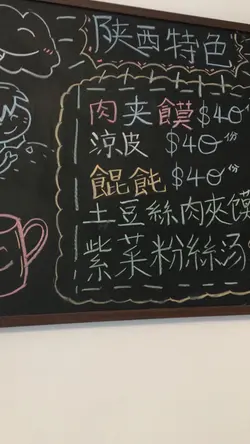 陝西特色
肉夾饃$40/份
涼皮 $40/份
餛飩$40/份
土豆絲肉夾饃
紫菜粉絲汤